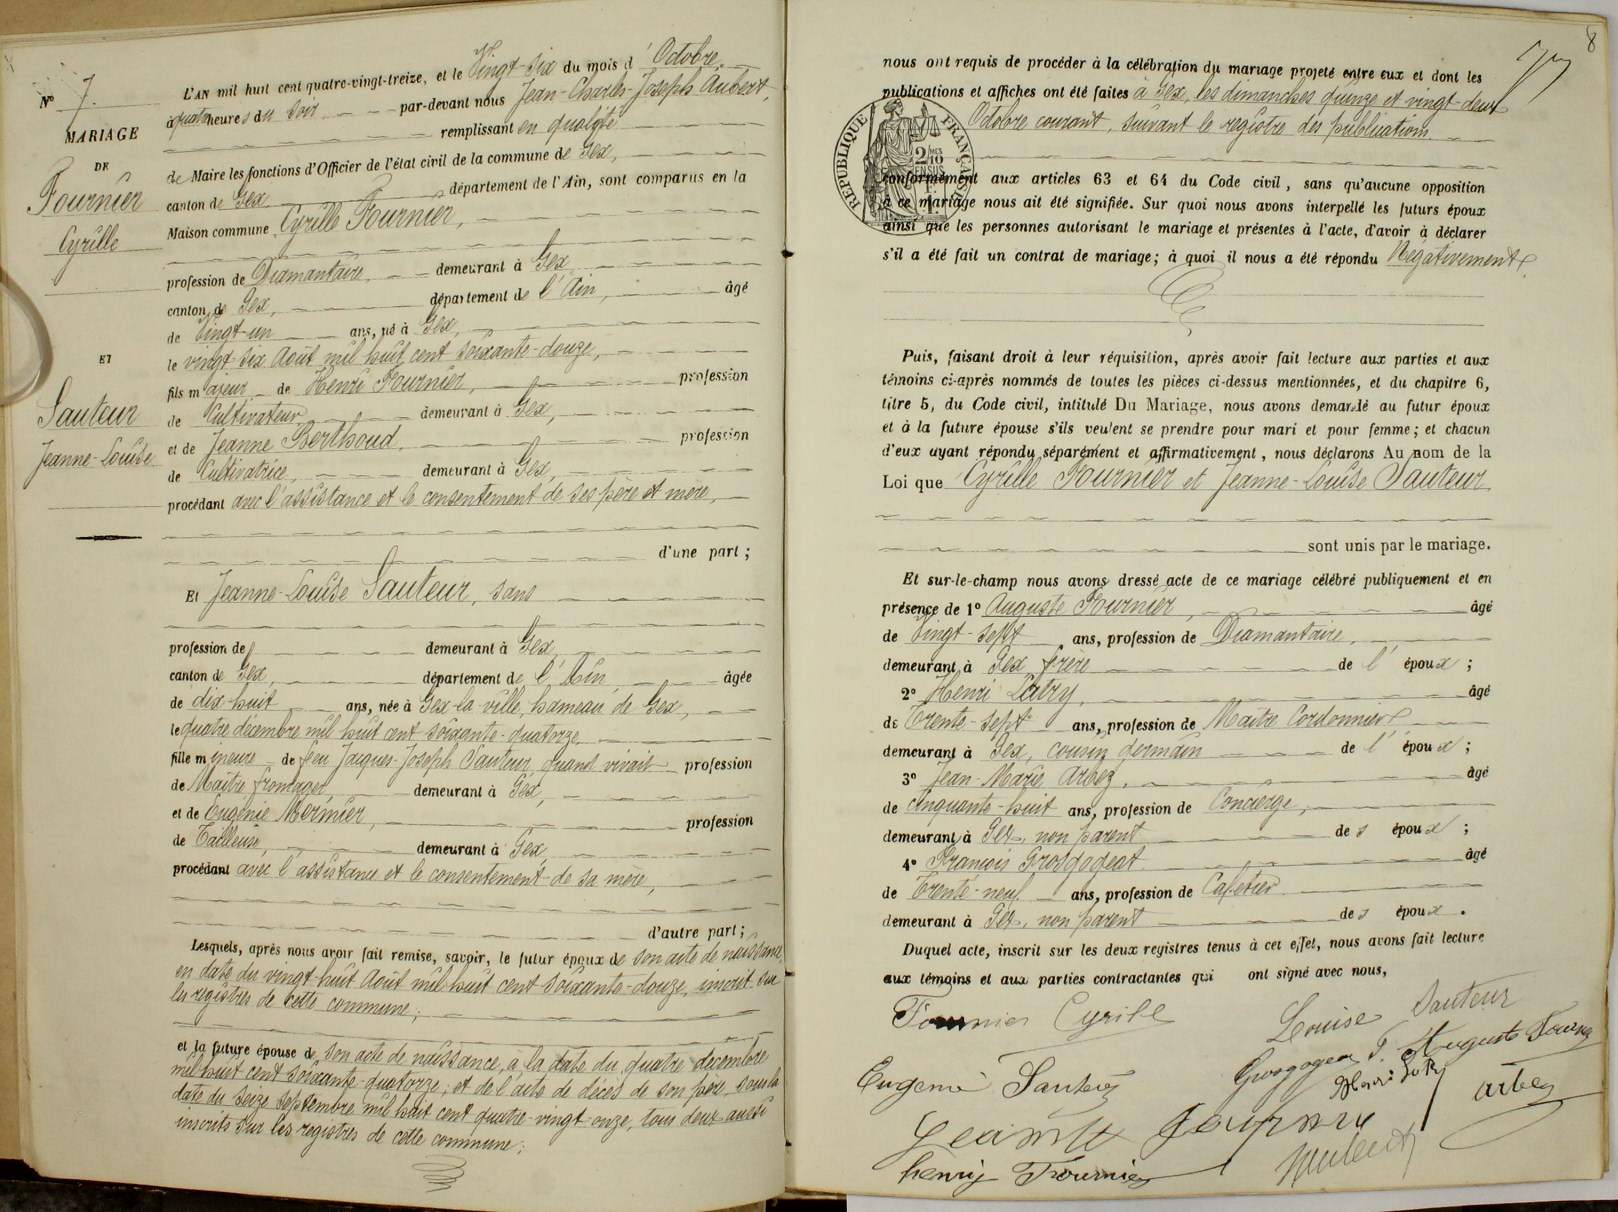 L'AN mil huit cent quatre-vingt-treize, et le Vingt-six du mois d'Octobre
à quatre heures du Soir par-devant nous Jean-Charles-Joseph Aubert,
remplissant en qualité
de Maire les fonctions d'Officier de l'état civil de la commune de Gex,
canton de Gex département de l'Ain, sont comparus en la
Maison commune Cyrille Fournier,
profession de Diamantaire, demeurant à Gex
canton de Gex, département de l'Ain, âgé
de Vingt-un ans, né à Gex,
le vingt-six Août mil huit cent soixante-douze,
fils majeur de Henri Fournier, profession
de Cultivateur demeurant à Gex,
et de Jeanne Berthoud profession
de Cultivatrice, demeurant à Gex,
procédant avec l'assistance et le consentement de ses père et mère,
d'une part ;
Et Jeanne-Louise Sauteur, sans
profession de demeurant à Gex
canton de Gex, département de l'Ain, âgée
de dix-huit ans, née à Gex-la-ville, hameau de Gex,
le quatre décembre mil huit cent soixante-quatorze,
fille mineure de feu Jacques-Joseph Sauteur, quand vivait profession
de Maître fromager, demeurant à Gex,
et de Eugénie Mermier, profession
de Tailleuse, demeurant à Gex,
procédant avec l'assistance et le consentement de sa mère,
d'autre part ;
Lesquels, après nous avoir fait remise, savoir, le futur époux de son acte de naissance
en date du vingt-huit Août mil huit cent soixante-douze, inscrit sur
les registres de cette commune ;
et la future épouse de son acte de naissance, à la date du quatre décembre
mil huit cent soixante-quatorze ; et de l'acte de décès de son père, sous la
date du seize Septembre mil huit cent quatre-vingt-onze, tous deux aussi
inscrits sur les registres de cette commune ;
N° 7
MARIAGE
DE
Fournier
Cyrille
ET
Sauteur
Jeanne-Louise
8
nous ont requis de procéder à la célébration du mariage projeté entre eux et dont les
publications et affiches ont été faites à Gex, les dimanches quinze et vingt-deux
Octobre courant, suivant le registre des publications
RÉPUBLIQUE FRANÇAISE
conformément aux articles 63 et 64 du Code civil, sans qu'aucune opposition
à ce mariage nous ait été signifiée. Sur quoi nous avons interpellé les futurs époux
ainsi que les personnes autorisant le mariage et présentes à l'acte, d'avoir à déclarer
s'il a été fait un contrat de mariage ; à quoi il nous a été répondu Négativement
Puis, faisant droit à leur réquisition, après avoir fait lecture aux parties et aux
témoins ci-après nommés de toutes les pièces ci-dessus mentionnées, et du chapitre 6,
titre 5, du Code civil, intitulé Du Mariage, nous avons demandé au futur époux
et à la future épouse s'ils veulent se prendre pour mari et pour femme ; et chacun
d'eux ayant répondu séparément et affirmativement, nous déclarons Au nom de la
Loi que Cyrille Fournier et Jeanne-Louise Sauteur
sont unis par le mariage.
Et sur-le-champ nous avons dressé acte de ce mariage célébré publiquement et en
présence de 1° Auguste Fournier, âgé
de Vingt-sept ans, profession de Diamantaire,
demeurant à Gex frère de l'époux ;
2° Henri Latry, âgé
de Trente-sept ans, profession de Maître Cordonnier
demeurant à Gex, cousin germain de l'époux ;
3° Jean-Marie Arbez, âgé
de cinquante-huit ans, profession de Concierge,
demeurant à Gex, non parent des époux ;
4° François Grosgogeat âgé
de Trente-neuf ans, profession de Cafetier
demeurant à Gex, non parent des époux.
Duquel acte, inscrit sur les deux registres tenus à cet effet, nous avons fait lecture
aux témoins et aux parties contractantes qui ont signé avec nous,
Fournier Cyrille
Louise Sauteur
Grosgogeat F. Auguste Fournier
Eugenie Sauteur
Henri
arbez
henry Fournier